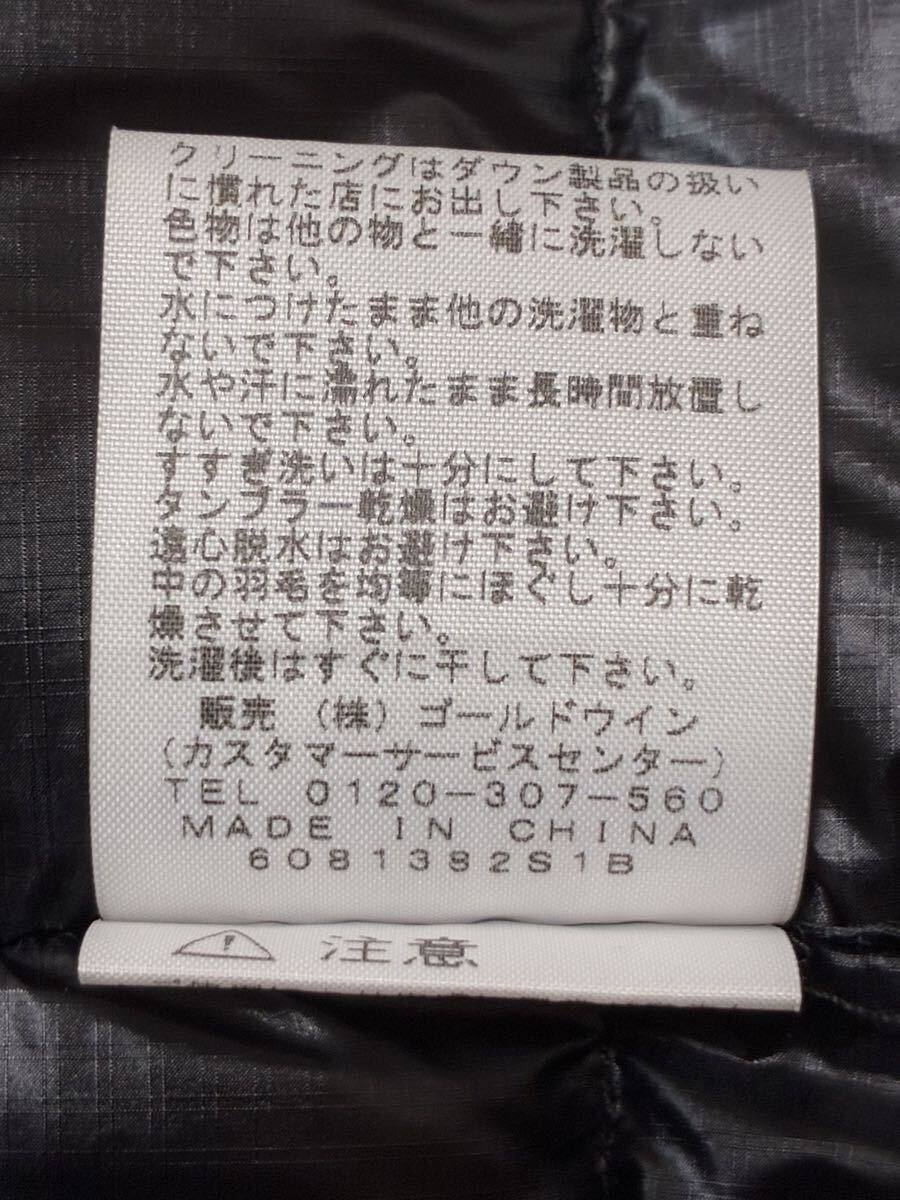 クリーニングはダウン製品の扱い
に慣れた店にお出し下さい。
色物は他の物と一緒に洗濯しない
で下さい。
水につけたまま他の洗濯物と重ね
ないで下さい。
水や汗に濡れたまま長時間放置し
ないで下さい。
すすぎ洗いは十分にして下さい。
タンブラー乾燥はお避け下さい。
遠心脱水はお避け下さい。
中の羽毛を均等にほぐし十分に乾
燥させて下さい。
洗濯後はすぐに干して下さい。
販売 (株) ゴールドウイン
(カスタマーサービスセンター)
TEL 0120-307-560
MADE IN CHINA
6081382S1B
注意